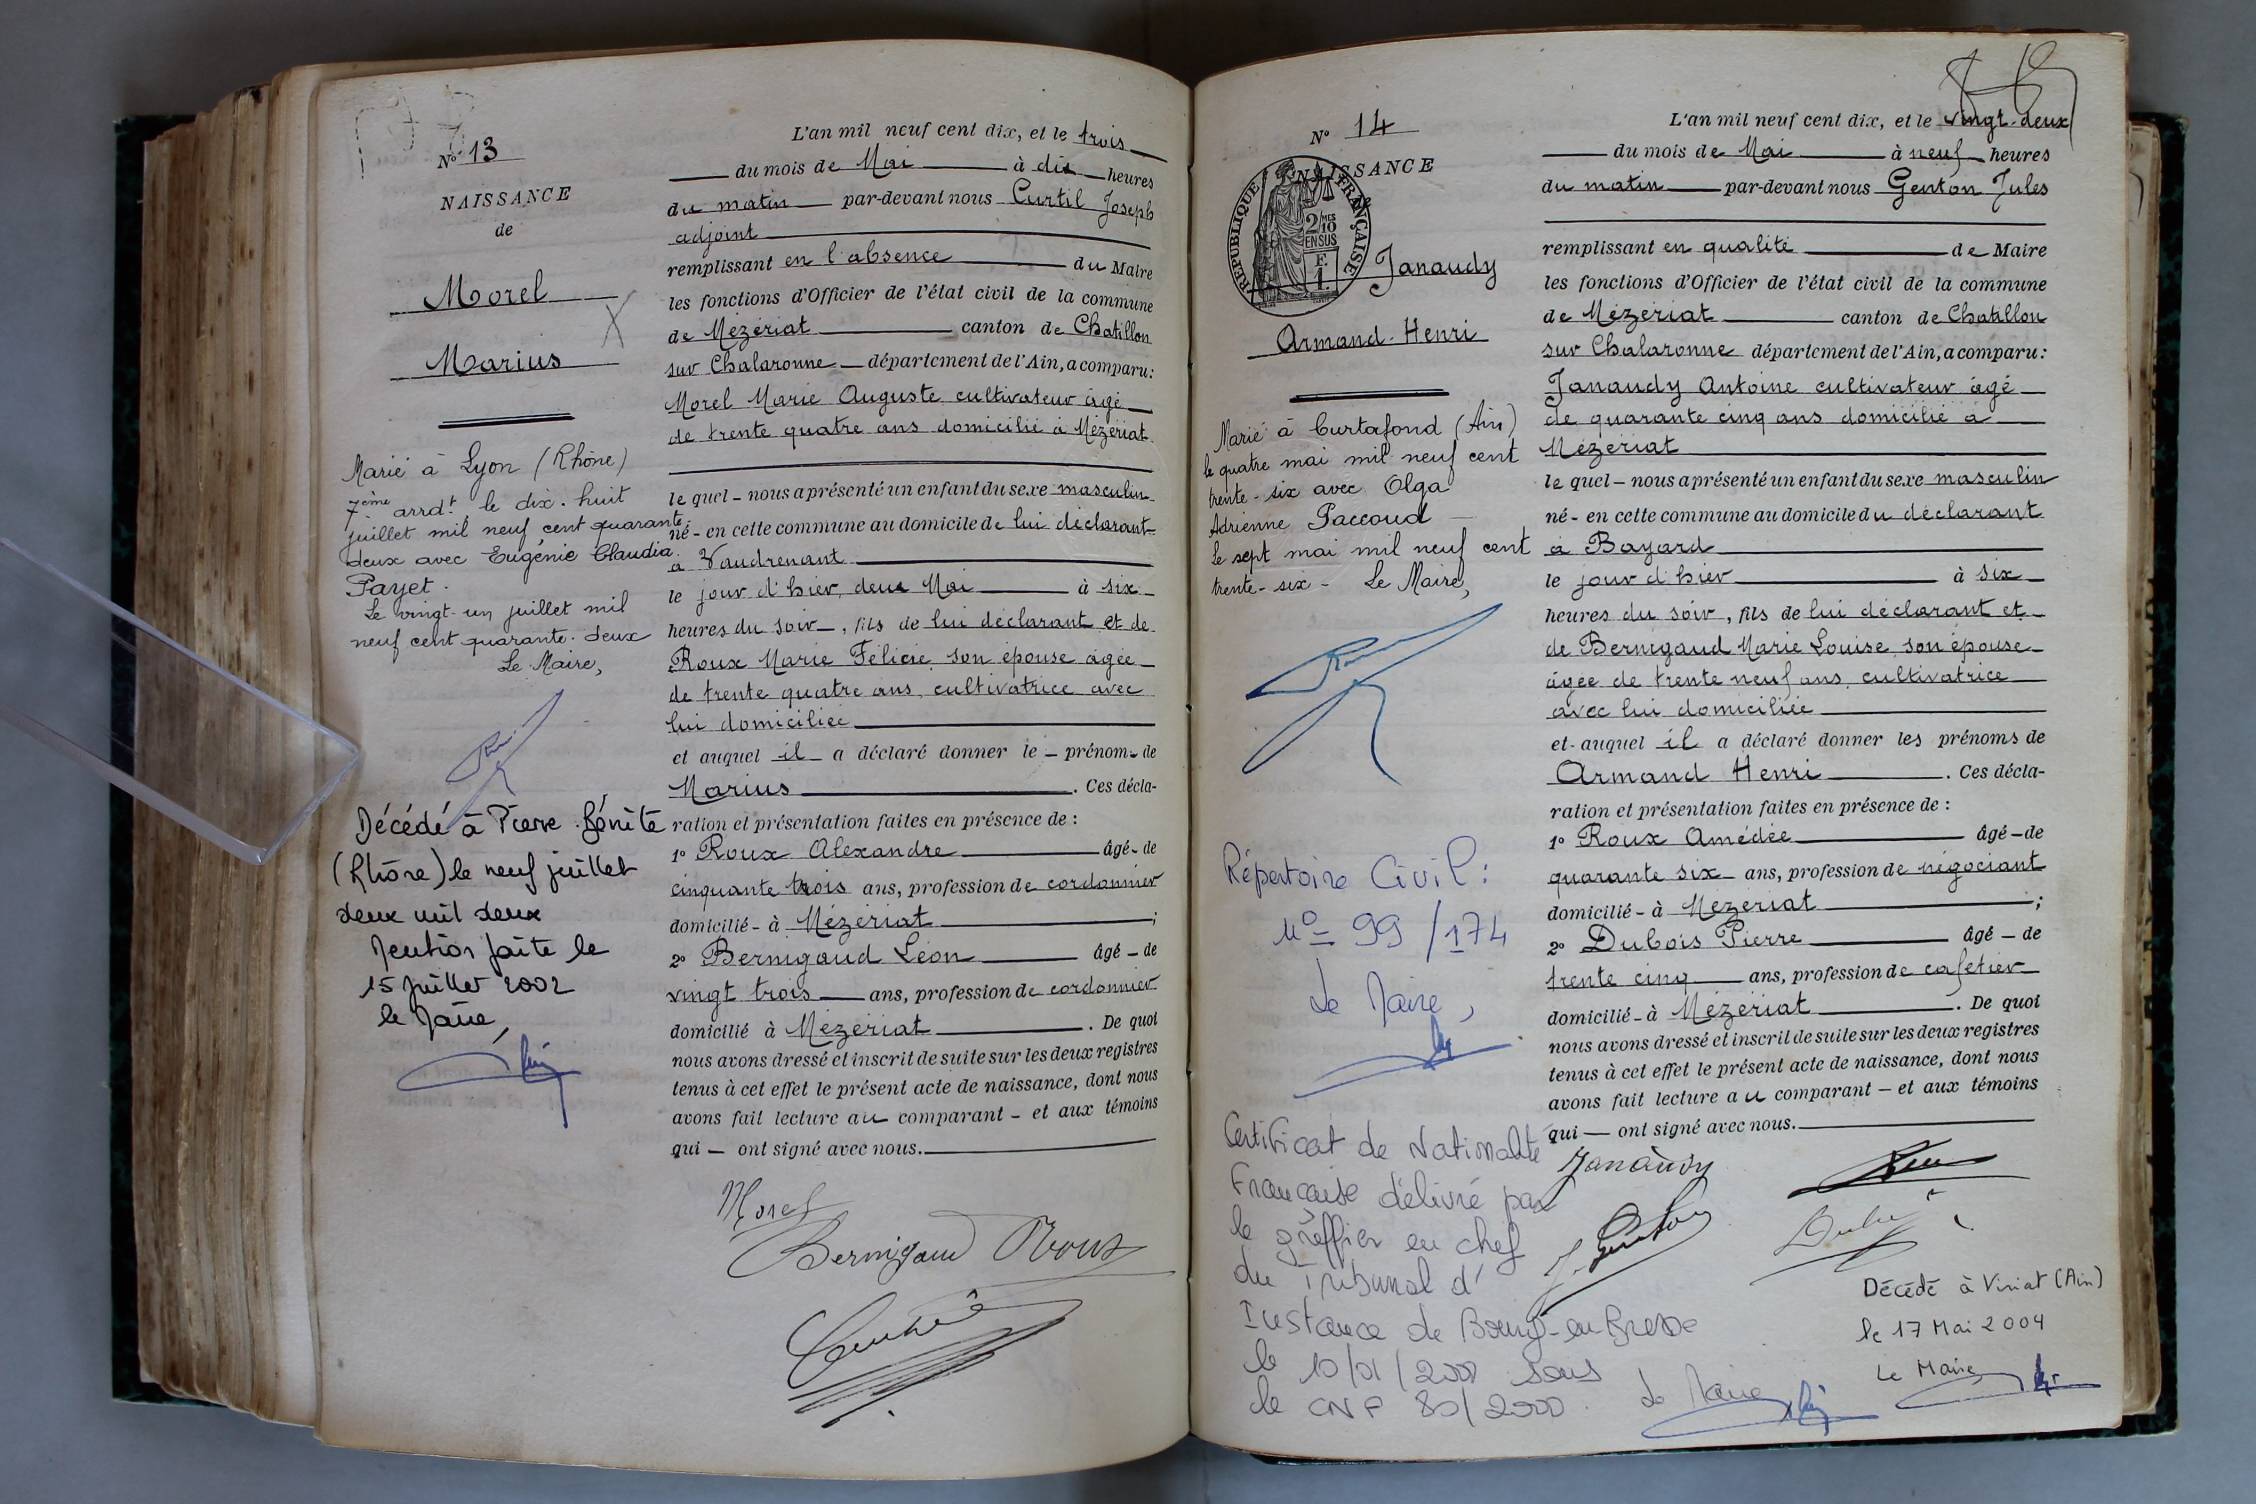 N° 13
NAISSANCE
de
Morel
Marius
Marié à Lyon (Rhône)
7ème arrdt. le dix-huit
juillet mil neuf cent quarante-
deux avec Eugénie Claudia
Payet.
Le vingt-un juillet mil
neuf cent quarante-deux
Le Maire,
Décédé à Pierre-Bénite
(Rhône) le neuf juillet
deux mil deux
Mention faite le
15 juillet 2002
le Maire,
L'an mil neuf cent dix, et le trois
du mois de Mai à dix heures
du matin par-devant nous Curtil Joseph
adjoint
remplissant en l'absence du Maire
les fonctions d'Officier de l'état civil de la commune
de Mézériat canton de Chatillon
sur Chalaronne département de l'Ain, a comparu:
Morel Marie Auguste cultivateur âgé
de trente quatre ans domicilié à Mézériat
le quel – nous a présenté un enfant du sexe masculin
né - en cette commune au domicile de lui déclarant
à Vaudrenant
le jour d'hier, deux Mai à six
heures du soir, fils de lui déclarant et de
Roux Marie Félicie, son épouse âgée
de trente quatre ans, cultivatrice avec
lui domiciliée
et auquel il a déclaré donner le – prénom - de
Marius. Ces décla-
ration et présentation faites en présence de :
1° Roux Alexandre âgé - de
cinquante trois ans, profession de cordonnier
domicilié - à Mézériat ;
2° Bernigaud Léon âgé – de
vingt trois ans, profession de cordonnier
domicilié à Mézériat. De quoi
nous avons dressé et inscrit de suite sur les deux registres
tenus à cet effet le présent acte de naissance, dont nous
avons fait lecture au comparant – et aux témoins
qui — ont signé avec nous.
Morel
Bernigaud Roux
N° 14
NAISSANCE
RÉPUBLIQUE FRANÇAISE
2/10 MES
EN SUS
F.
1.
Janaudy
Armand-Henri
Marié à Curtafond (Ain)
le quatre mai mil neuf cent
trente-six avec Olga
Adrienne Paccoud
Le sept mai mil neuf cent
trente-six - Le Maire,
Répertoire Civil :
N° 99/174
Le Maire,
Certificat de Nationalité
Française délivré par
le greffier en chef
du Tribunal d'
Instance de Bourg-en-Bresse
le 10/01/2000 sous
le CNF 80/2000.
Le Maire
L'an mil neuf cent dix, et le vingt-deux
du mois de Mai à neuf heures
du matin par-devant nous Genton Jules
remplissant en qualité de Maire
les fonctions d'Officier de l'état civil de la commune
de Mézériat canton de Chatillon
sur Chalaronne département de l'Ain, a comparu:
Janaudy Antoine cultivateur âgé
de quarante cinq ans domicilié à
Mézériat
le quel – nous a présenté un enfant du sexe masculin
né - en cette commune au domicile du déclarant
à Bayard
le jour d'hier à six
heures du soir, fils de lui déclarant et
de Bernigaud Marie Louise son épouse
âgée de trente neuf ans, cultivatrice
avec lui domiciliée
et - auquel il a déclaré donner les prénoms de
Armand Henri. Ces décla-
ration et présentation faites en présence de :
1° Roux Amédée âgé – de
quarante six ans, profession de négociant
domicilié - à Mézériat ;
2° Dubois Pierre âgé – de
trente cinq ans, profession de cafetier
domicilié - à Mézériat. De quoi
nous avons dressé et inscrit de suite sur les deux registres
tenus à cet effet le présent acte de naissance, dont nous
avons fait lecture au comparant – et aux témoins
qui — ont signé avec nous.
Janaudy
J. Genton
Décédé à Viriat (Ain)
le 17 Mai 2004
Le Maire